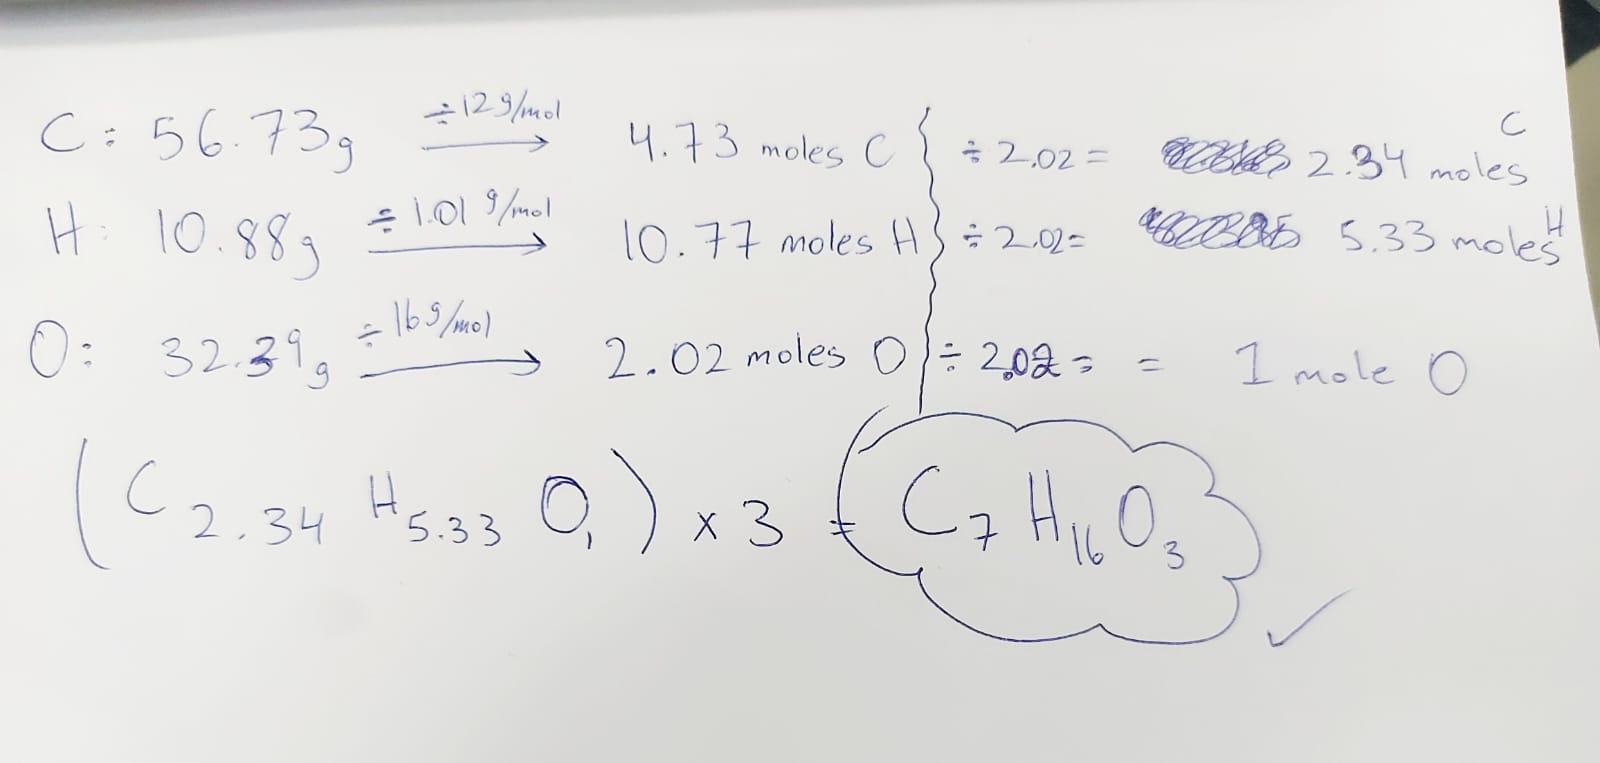 C: 56.73g ÷12 g/mol → 4.73 moles C } ÷ 2.02 = 2.34 moles C
H: 10.88g ÷ 1.01 g/mol → 10.77 moles H } ÷ 2.02 = 5.33 moles H
O: 32.39g ÷ 16 g/mol → 2.02 moles O } ÷ 2.02 = = 1 mole O
(C₂.₃₄ H₅.₃₃ O₁) × 3 = C₇H₁₆O₃ ✓